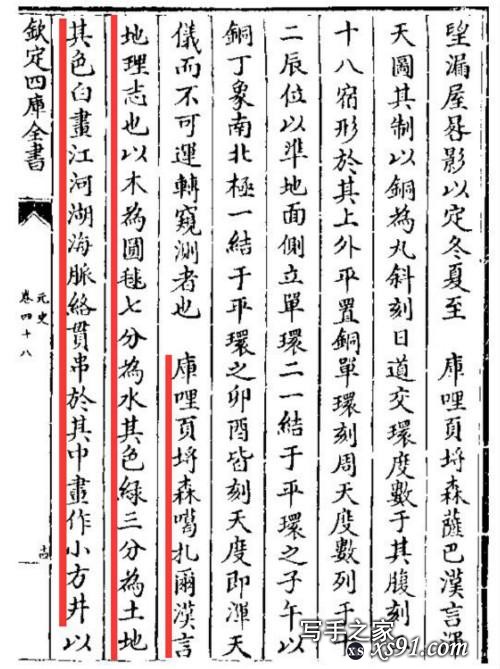 望漏屋晷影以定冬夏至　庫哩頁埒森薩巴漢言渾
天圖其制以銅為丸斜刻日道交環度數于其腹刻二
十八宿形於其上外平置銅單環刻周天度數列于十
二辰位以準地面側立單環二一結于平環之子午以
銅丁象南北極一結于平環之卯酉皆刻天度即渾天
儀而不可運轉窺測者也　庫哩頁埒森噶扎爾漢言
地理志也以木為圓毬七分為水其色綠三分為土地
其色白畫江河湖海脈絡貫串於其中畫作小方井以
欽定四庫全書
元史
卷四十八
写手之家
xs91.com